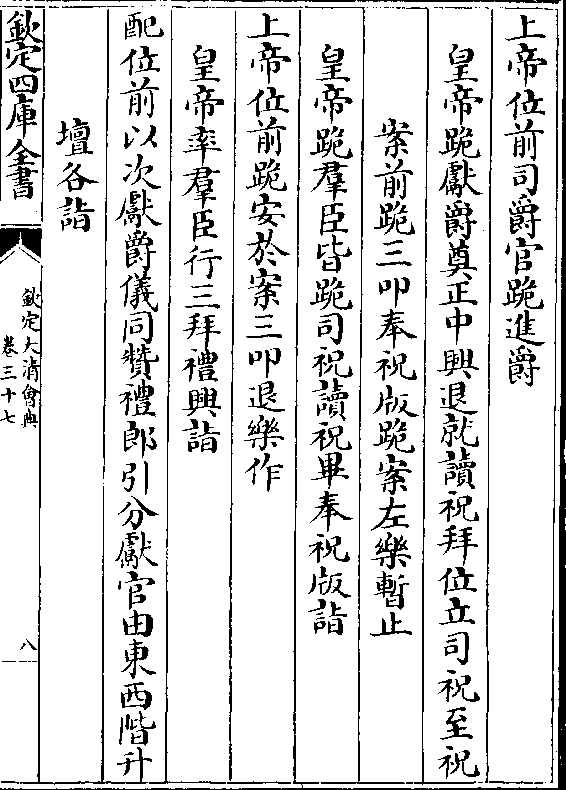 上帝位前司爵官跪進爵
皇帝跪獻爵奠正中興退就讀祝拜位立司祝至祝
案前跪三叩奉祝版跪案左樂暫止
皇帝跪羣臣皆跪司祝讀祝畢奉祝版詣
上帝位前跪安於案三叩退樂作
皇帝率羣臣行三拜禮興詣
配位前以次獻爵儀同贊禮郎引分獻官由東西階升
壇各詣
欽定四庫全書
欽定大清會典
卷三十七
八